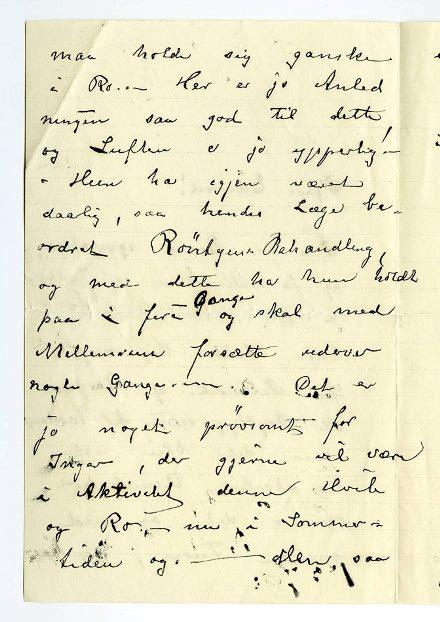 maa holde sig ganske
i Ro. — Her er jo Anled
ningen saa god til dette,
og Luften er jo ypperlig! —
- Hun har igjen været
daarlig, saa hendes Læge be-
ordret Röntgen Behandling,
og med dette har hun holdt
paa i fire Gange og skal med
Mellemrum fortsætte
nogle Gange. Det er
jo noget prövsomt for
Inger, der gjerne vil være
i Aktivitet denne Hvile
og Ro. — nu i Sommer-
tiden og. — Men, saa